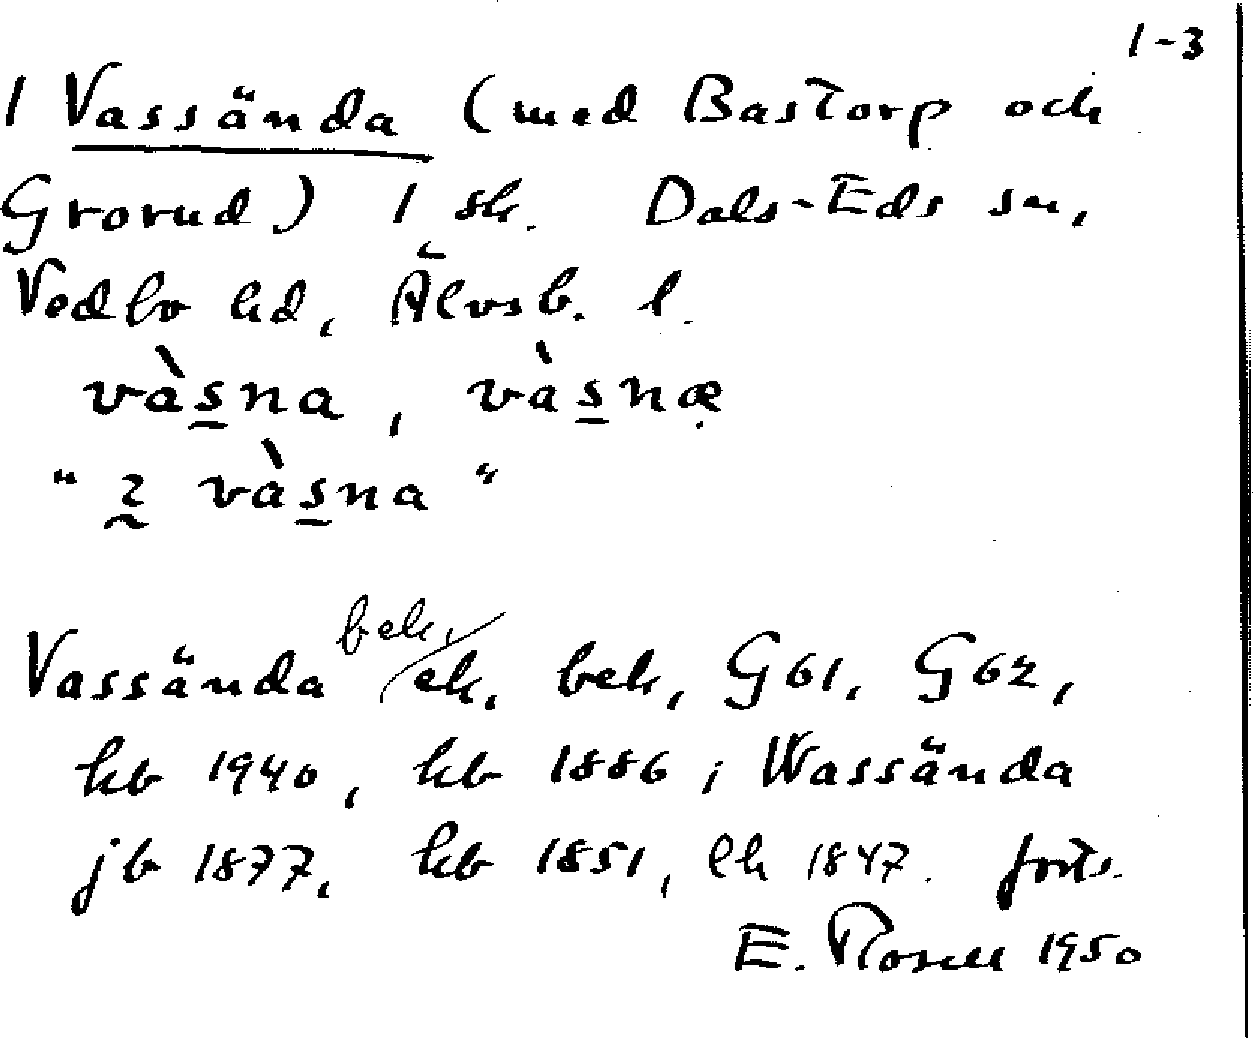 1-3
1 Vassända (med Bastorp och
Grorud) 1 sk. Dals-Eds sn,
Vedbo hd, Älvsb. l.
vàs̲na, vàs̲næ
"2 vàs̲na"
bek.
Vassända ek. bek, G61, G62,
kb 1940, kb 1886; Wassända
jb 1877, kb 1851, lk 1847. forts.
E. Rosell 1950